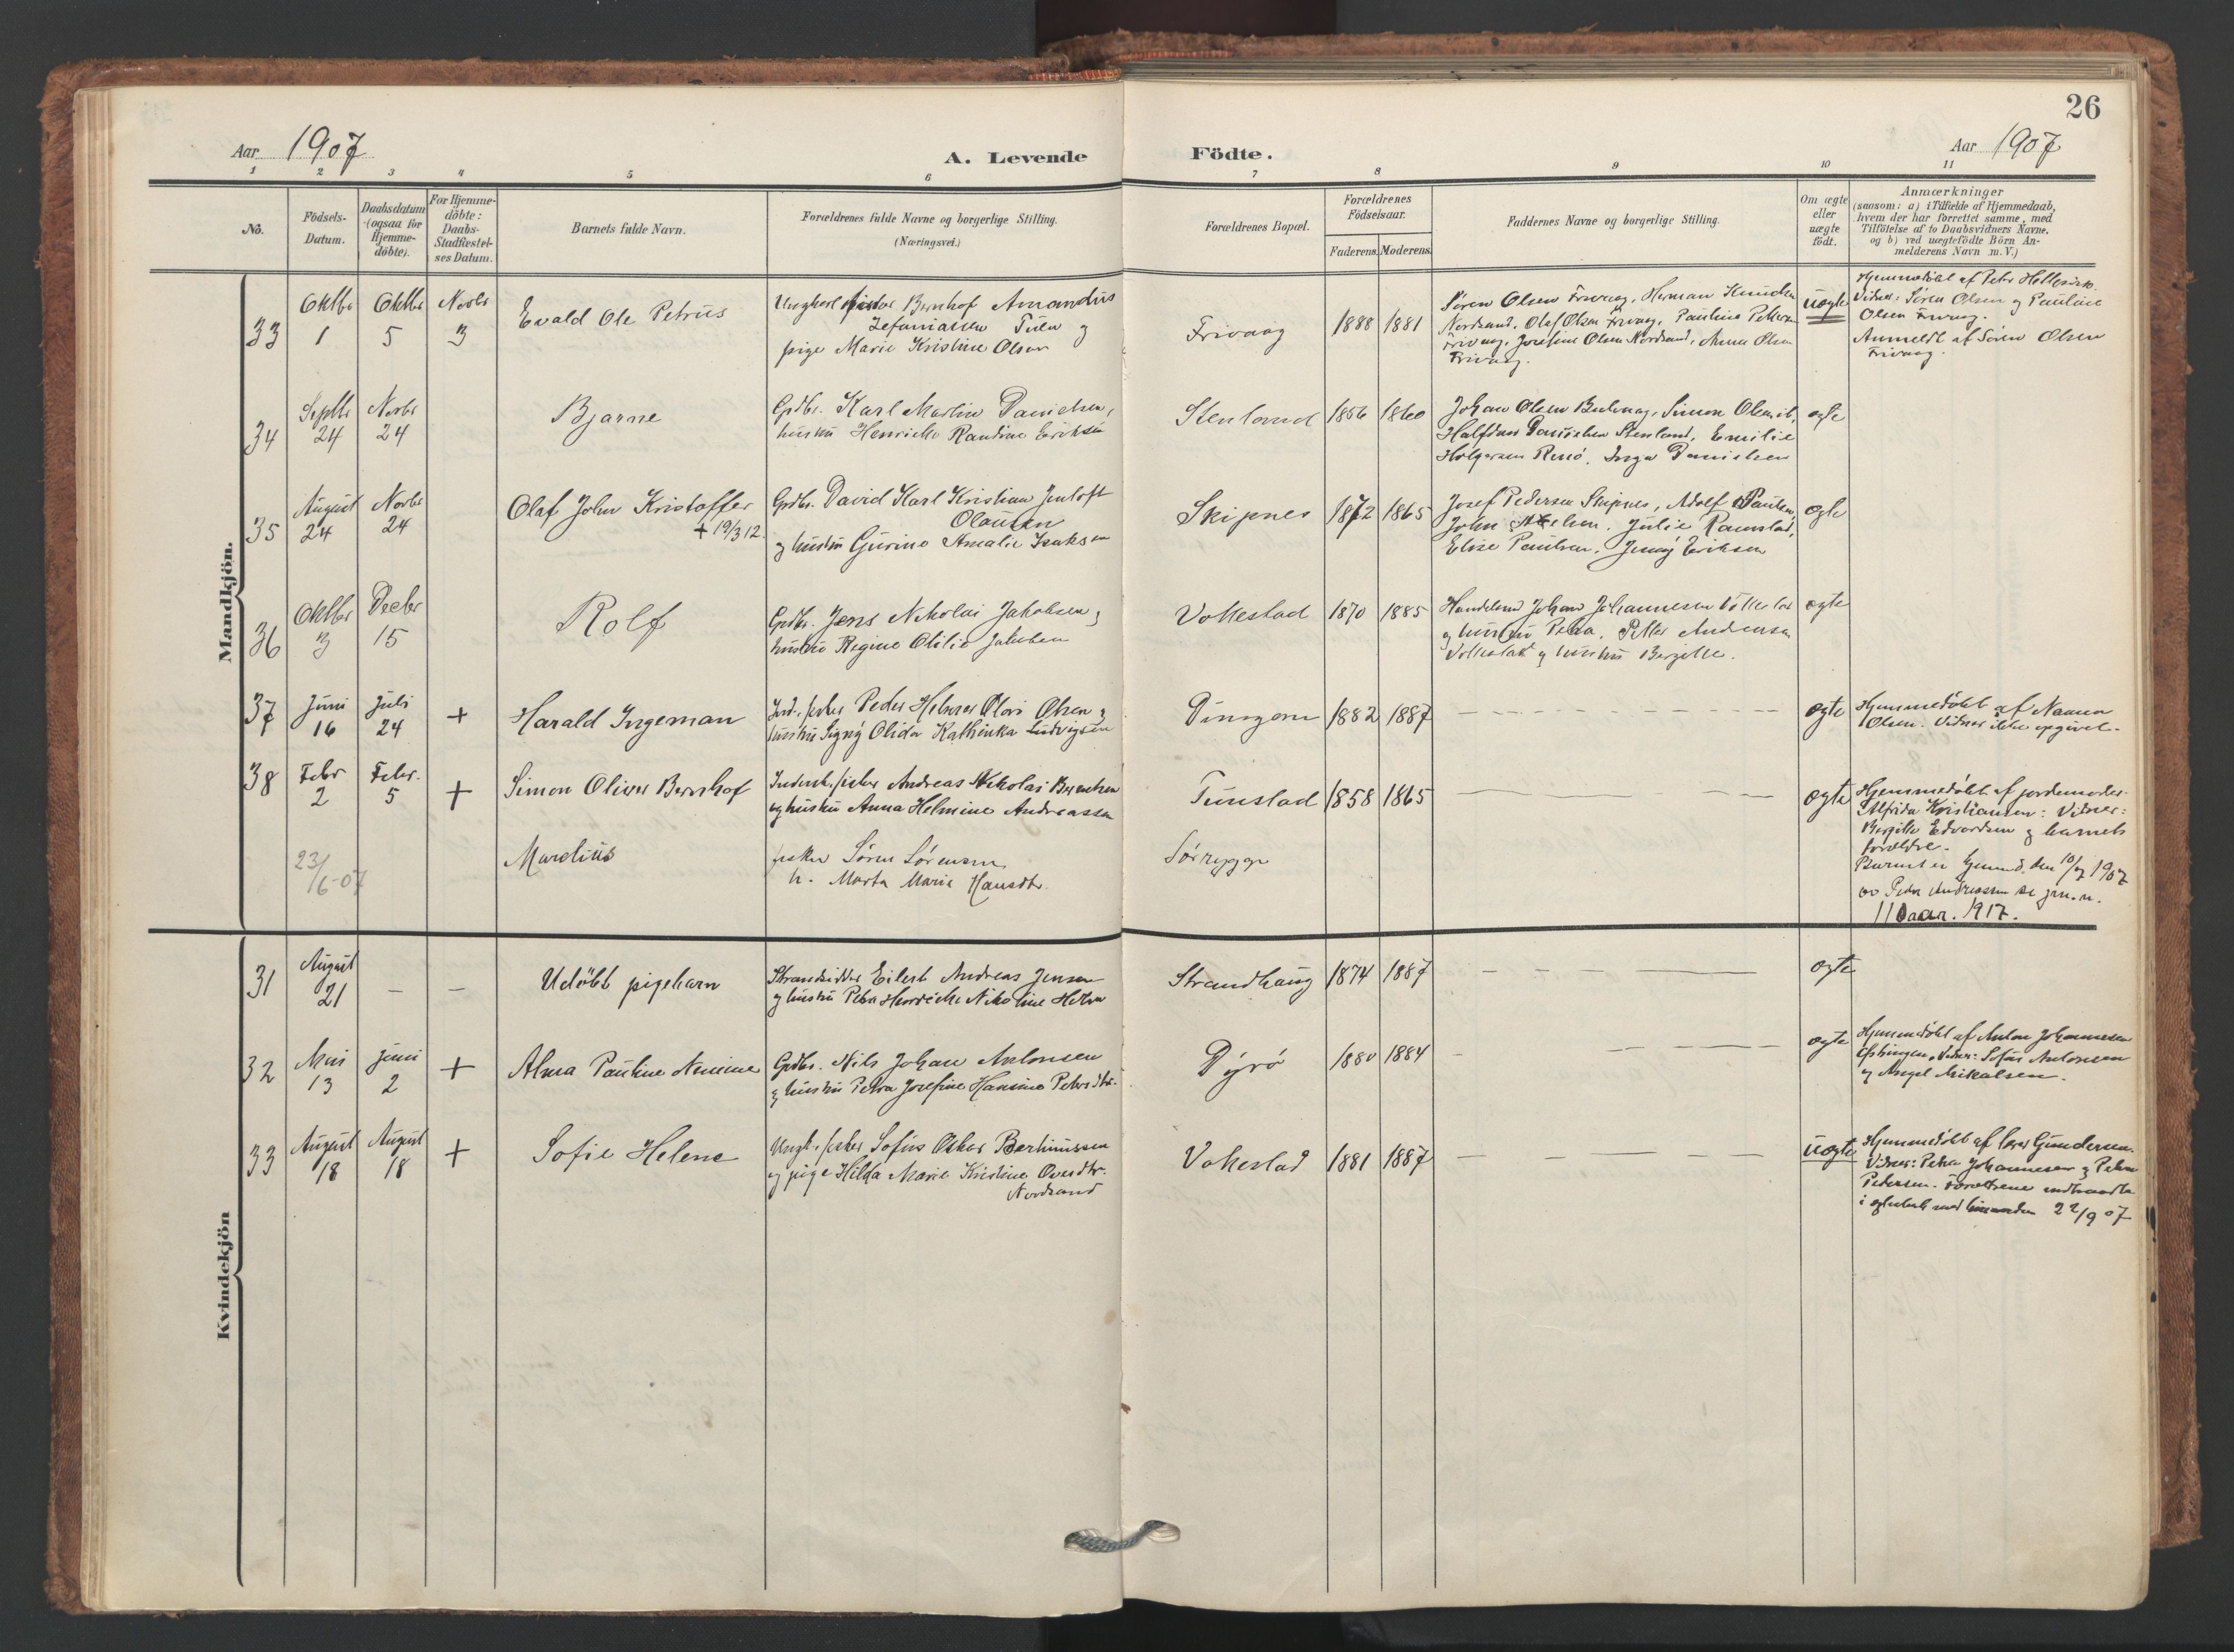 26
Aar 1907
A. Levende
Fødte.
Aar 1907
1 2 3 4 5 6 7 8 9 10 11
No.
Födsels-
Datum.
Daabsdatum
(ogsaa for
Hjemme-
døbte).
For Hjemme-
döbte:
Daabs-
Stadfæstel-
ses Datum.
Barnets fulde Navn.
Forældrenes fulde Navne og borgerlige Stilling.
(Næringsvei.)
Forældrenes Bopæl.
Forældrenes
Födselsaar.
Faderens. Moderens.
Faddernes Navne og borgerlige Stilling.
Om ægte
eller
uægte
födt.
Anmærkninger
(saasom: a) i Tilfælde af Hjemmedaab,
hvem der har forrettet samme, med
Tilføielse af to Daabsvidners Navne,
og b) ved uægtefödte Börn An-
melderens Navn m.V.)
Mandkjön.
33
Oktbr
1
Oktbr
5
Novbr
3
Ewald Ole Petrus
Ungkarl fisker Bernhof Amandus
Zefaniasen Tuen og
pige Marie Kristine Olsen
Frivaag
1888 1881
Søren Olsen Frivaag, Herman Knudsen
Nordsand, Olaf Olsen Frivaag, Pauline Pettersen
Frivaag, Josefine Olsen Nordsand, Anna Olsen
Frivaag.
uægte
Hjemmedöbt af Peter
Vidner: Søren Olsen og Pauline
Olsen Frivaag.
Anmeldt af Søren Olsen
Frivaag.
34
Septbr
24
Novbr
24
Bjarne
Grdbr. Karl Martin Danielsen,
hustru Henrikke Randine Eriksen
Stenland
1856 1860
Johan Olsen, Simon Olsen
Halfdan Danielsen Stenland, Emilie
Holgersen Renø, Inga Danielsen
ægte
35
August
24
Novbr
24
Olaf John Kristoffer
+ 19/3 12.
Grdbr. David Karl Kristian Jentoft
Olausen
og hustru Gurine Amalie Isaksen
Skipnes
1872 1865
Josef Pedersen Skipnes, Adolf Paulsen,
John, Julie Ramstad,
Elise Paulsen, Jenny Eriksen
ægte
36
Oktbr
3
Decbr
15
Rolf
Grdbr. Jens Nikolai Jakobsen og
hustru Regine Otilie Jakobsen
Vottestad
1870 1885
Handelsmd Johan Johannesen Vottestad
og hustru Petra, Petter Andreasen
Vottestad og hustru Bergitte.
ægte
37
Juni
16
Juli
24
+
Harald Ingeman
Ind., fisker Peder Helmer Olai Olsen og
hustru Signy Olida Kathinka Ludvigsen
1882 1887
ægte
Hjemmedöbt af Nanna
Olsen. Vidner ikke opgivet.
38
Febr
2
Febr.
5
+
Simon Oliver Bernhof
Inderst, fisker Andreas Nikolai Berntsen
og hustru Anna Helmine Andreassen
Tunstad
1858 1865
ægte
Hjemmedöbt af jordemoder
Alfrida Kristiansen: Vidner:
Bergitte Edvardsen og barnets
forældre.
23/6-07
Marelius
fisker Søren Sørensen
h. Marta Marie Hansdtr.
Sørrygge
Barnet er hjemmed. den 10/7 1907
av Peder Andreassen
11 aar. 1917.
Kvindekjön
31
August
21
– –
Udöbt pigebarn
Strandsidder Eilert Andreas Jensen
og hustru Petra Henrikke Nikoline
Strandhaug
1874 1887
ægte
32
Mai
13
Juni
2
+
Alma Pauline Nemine
Grdbr. Nils Johan Antonsen
og hustru Petra Josefine Hansine Petersdtr.
Dyrø
1880 1884
ægte
Hjemmedöbt af Anton Johannesen
Vidner: Sofus Antonsen
og Angel Mikalsen.
33
August
18
August
18
+
Sofie Helene
Ungk., fisker Sofus Oskar Bertinussen
og pige Hilda Marie Kristine Ovesdtr.
Nordsand
Vottestad
1881 1887
uægte
Hjemmedöbt af Gundersen.
Vidner: Petra Johannesen og Petra
Pedersen. Forældrene indtraadte
i ægteskab med hinanden 22/9 07